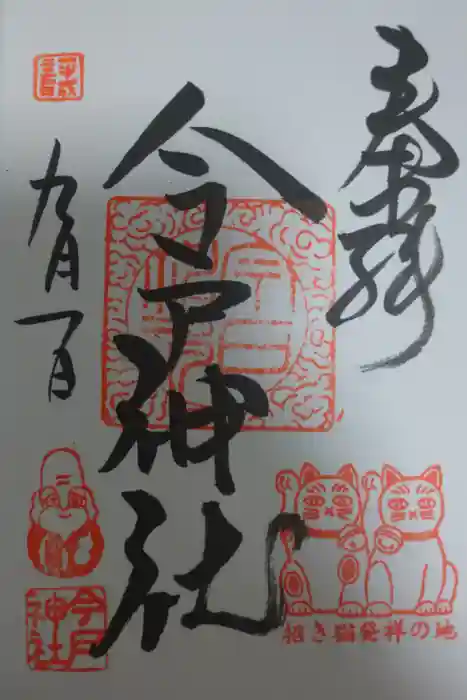 奉拝
今戸神社
九月一日
招き猫発祥の地
今戸神社